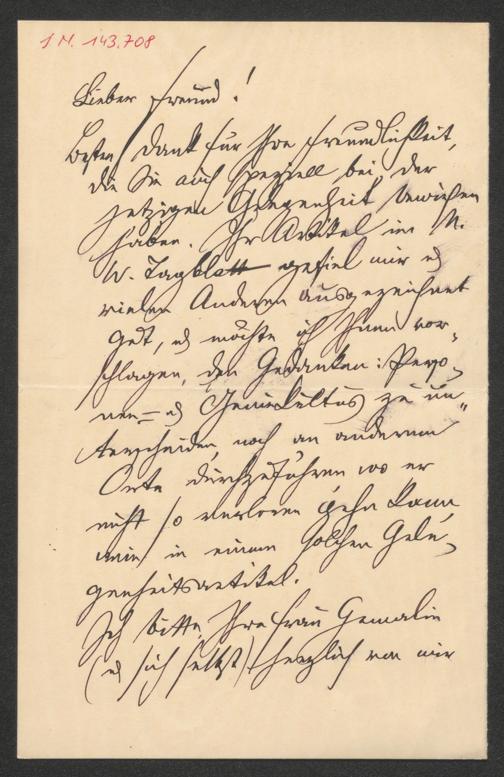 I N. 143.708
Lieber Freund!
Besten Dank für Ihre Freundlichkeit,
die Sie auch speziell bei der
jetzigen Gelegenheit bewiesen
haben. Ihr Artikel im N.
W. Tagblatt gefiel mir u
vielen Anderen ausgezeichnet
gut, u möchte ich Ihnen vor-
schlagen, den Gedanken: Perso-
nen- u Geniekultus zu un-
terscheiden, noch an anderem
Orte durchzuführen, wo er
nicht so verloren gehn kann
wie in einem solchen Gele-
genheitsartikel.
Ich bitte, Ihre Frau Gemalin
(u sich selbst) herzlich von mir